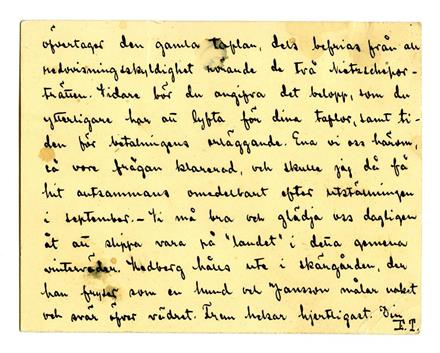 öfvertager den gamla taflan, dels befrias från all
redovisningsskyldighet rörande de två Nietzschepor-
trätten. Vidare bör du angifva det belopp, som du
ytterligare har att lyfta för dina taflor, samt ti-
den för betalningens erläggande. Ena vi oss härom,
så vore frågan klarerad, och skulle jag då få
hit alltsammans omedelbart efter utställningen
i september. – Vi må bra och glädja oss dagligen
åt att slippa vara på "landet" i detta gemena
vinterväder. Hedberg hålls ute i skärgården, der
han fryser som en hund och Jansson målar noket
och svär öfver vädret. Frun helsar hjertligast. Din
E.T.